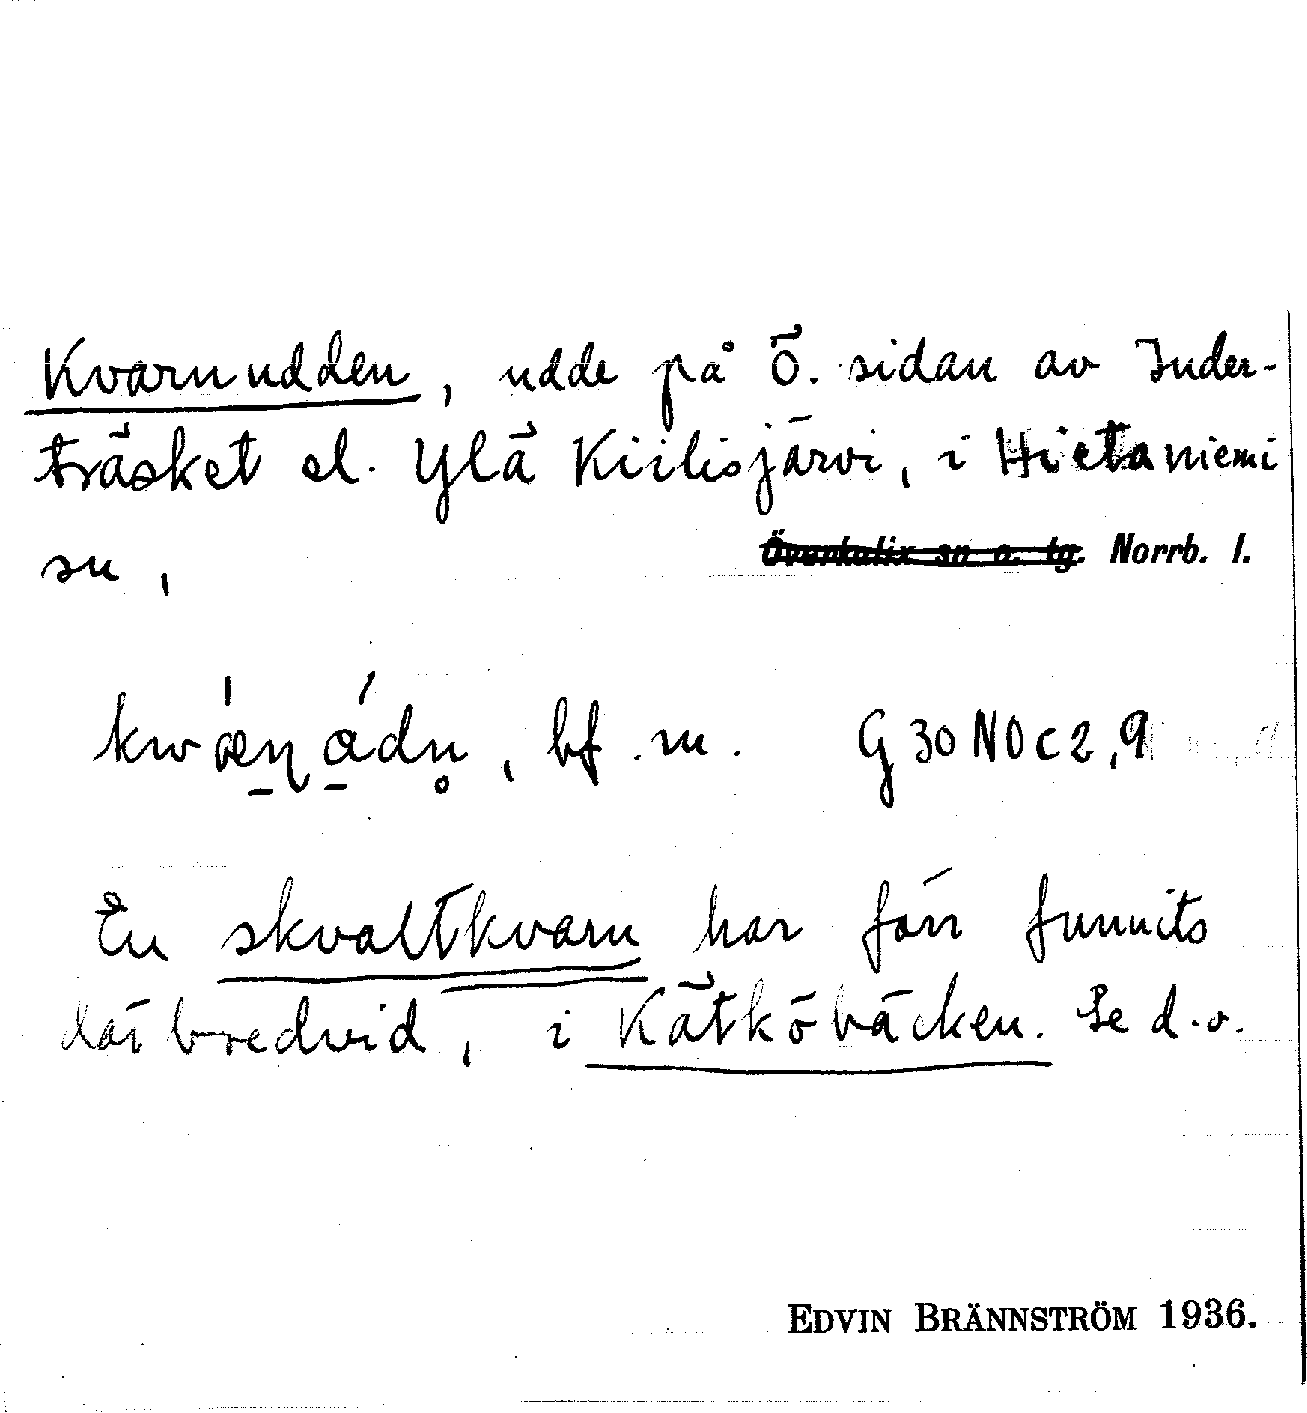 Kvarnudden, udde på Ö. sidan av Inder-
träsket el. Ylä Kiilisjärvi, i Hietaniemi
sn, Överkalix sn o. tg. Norrb. l.
bf. m. G 30 NO c 2, 9
En skvaltkvarn har förr funnits
därbredvid, i Kätköbäcken. Se d.o.
EDVIN BRÄNNSTRÖM 1936.